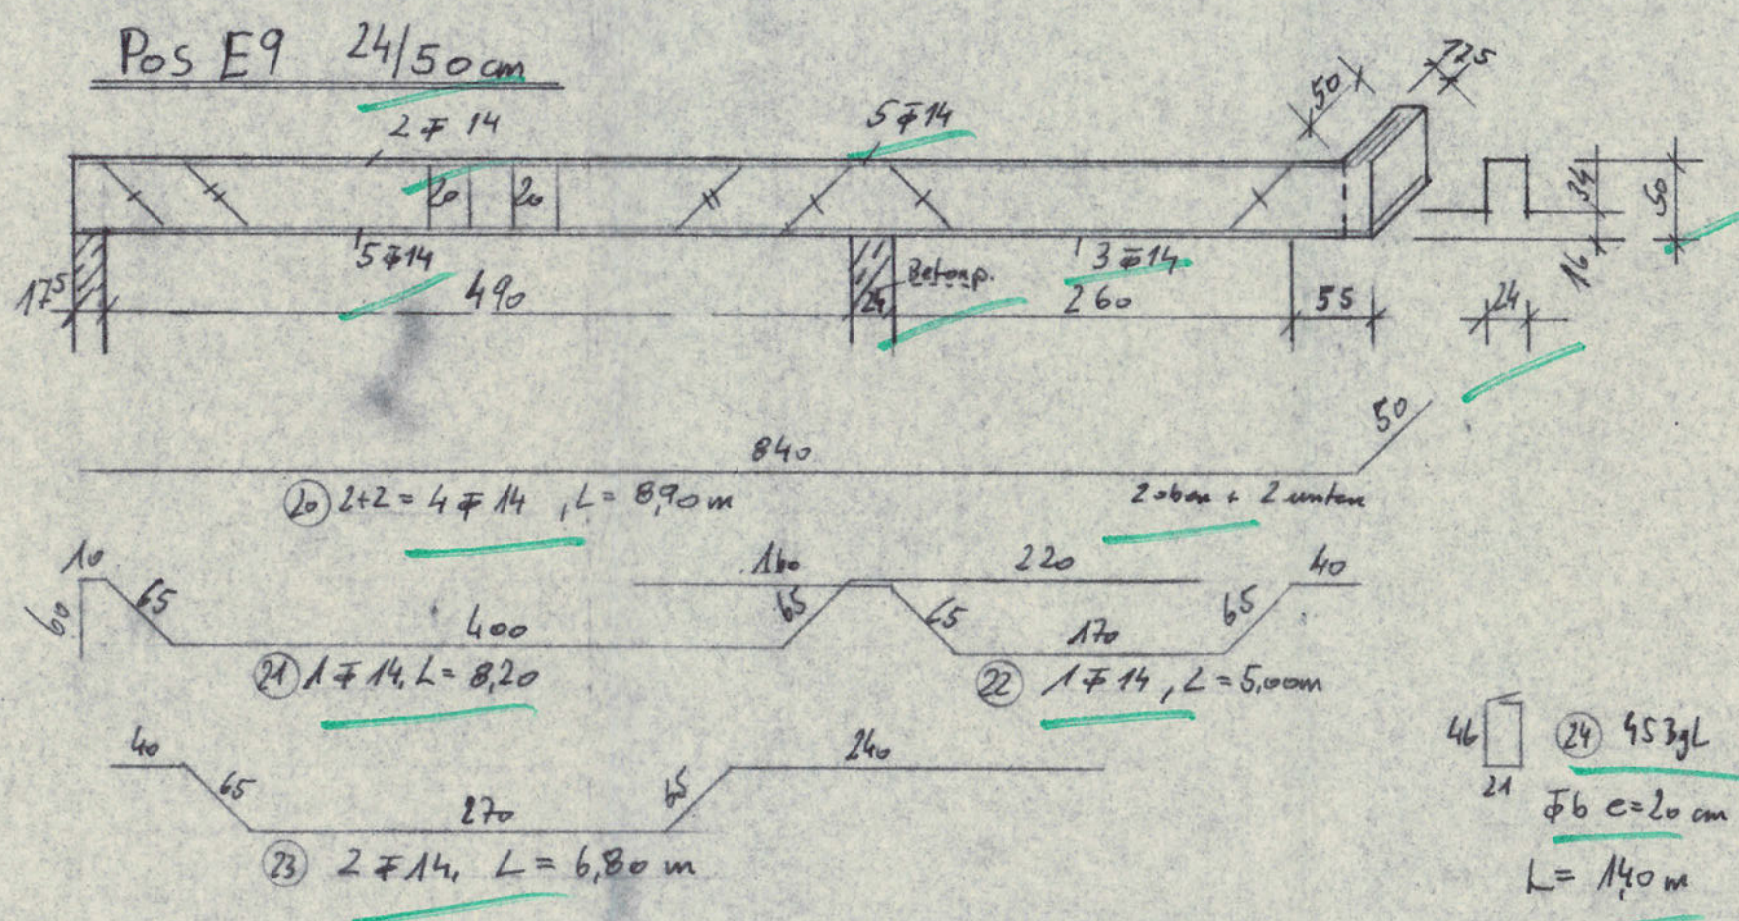 Pos E9 24/50 cm
50 125
2 Φ 14 5 Φ 14
20 20
34 50
16
5 Φ 14 Betonp. 3 Φ 14
17⁵ 490 24 260 55 24
840 50
20 2+2 = 4 Φ 14 , L = 8,90 m 2 oben + 2 unten
10 160 220 40
60 65 400 65 65 170 65
21 1 Φ 14, L = 8,20 22 1 Φ 14 , L = 5,00 m
40 65 270 65 240
23 2 Φ 14, L = 6,80 m
46 21 24 45 Bgl
Φ 6 e = 20 cm
L = 1,40 m